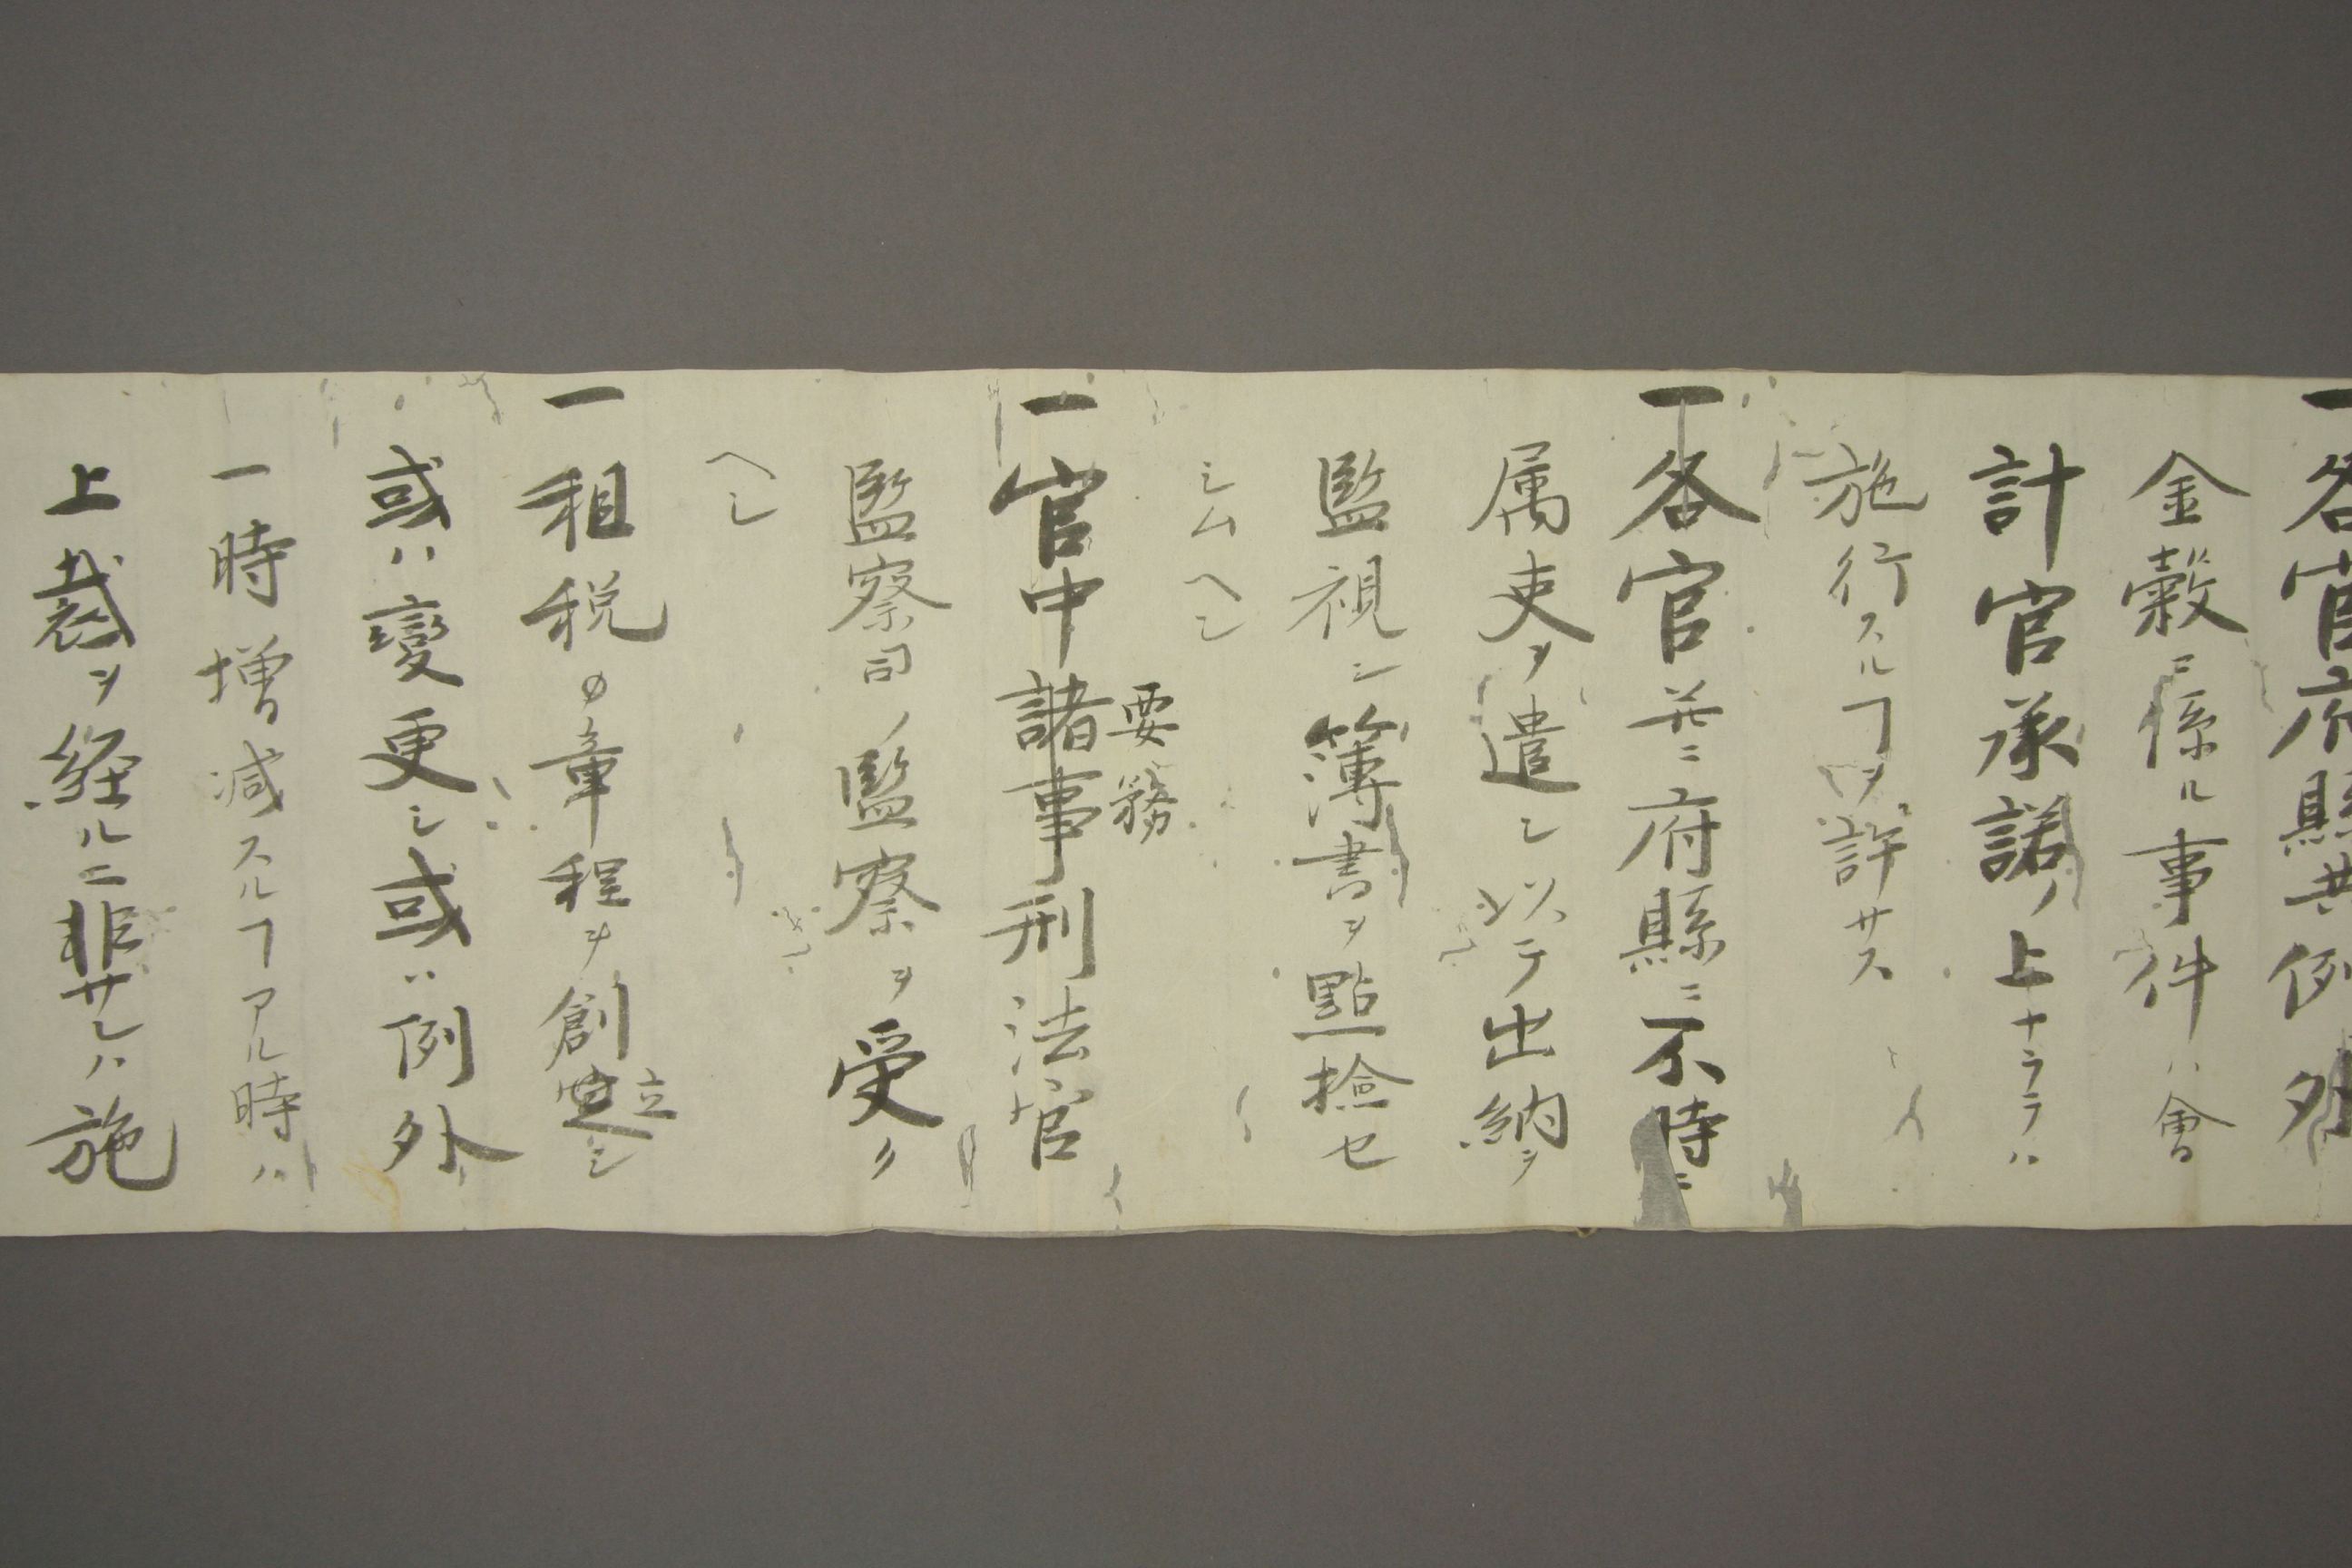 一各官府縣共例外
金穀ニ係ル事件ハ會
計官承諾ノ上ナラテハ
施行スルヿヲ許サス
一各官并ニ府縣ニ不時ニ
属吏ヲ遣シ以テ出納ヲ
監視シ簿書ヲ點撿セ
シムヘシ
要務
一官中諸事刑法官
監察司ノ監察ヲ受ク
ヘシ
一租税ノ章程ヲ創立シ
或ハ變更シ或ハ例外
一時増减スルヿアル時ハ
上裁ヲ経ルニ非サレハ施